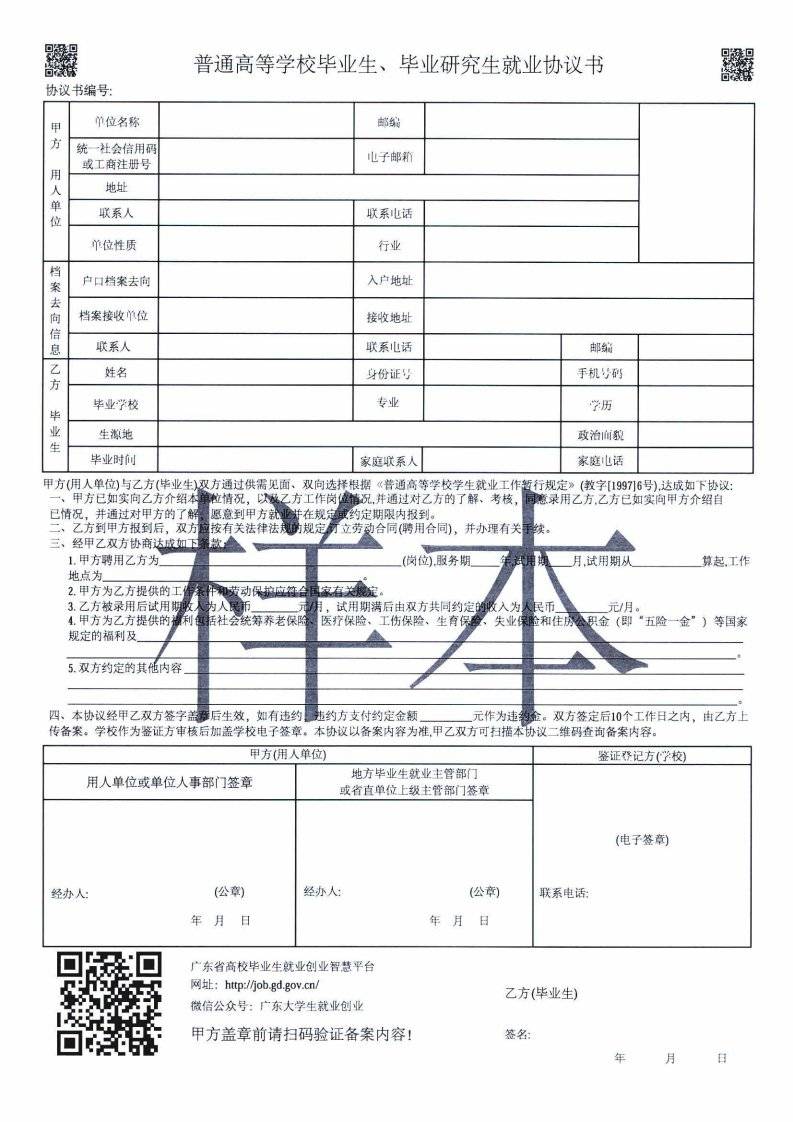 普通高等学校毕业生、毕业研究生就业协议书
协议书编号:
甲方 用人单位
单位名称 邮编
统一社会信用码 或工商注册号 电子邮箱
地址
联系人 联系电话
单位性质 行业
档案去向信息
户口档案去向 入户地址
档案接收单位 接收地址
联系人 联系电话 邮编
乙方 毕业生
姓名 身份证号 手机号码
毕业学校 专业 学历
生源地 政治面貌
毕业时间 家庭联系人 家庭电话
甲方(用人单位)与乙方(毕业生)双方通过供需见面、双向选择根据《普通高等学校学生就业工作暂行规定》(教字[1997]6号),达成如下协议:
一、甲方已如实向乙方介绍本单位情况，以及乙方工作岗位情况,并通过对乙方的了解、考核，同意录用乙方,乙方已如实向甲方介绍自
已情况，并通过对甲方的了解，愿意到甲方就业并在规定或约定期限内报到。
二、乙方到甲方报到后，双方应按有关法律法规的规定订立劳动合同(聘用合同)，并办理有关手续。
三、经甲乙双方协商达成如下条款:
1.甲方聘用乙方为 (岗位),服务期 年,试用期 月,试用期从 算起,工作
地点为 。
2.甲方为乙方提供的工作条件和劳动保护应符合国家有关规定。
3.乙方被录用后试用期收入为人民币 元/月，试用期满后由双方共同约定的收入为人民币 元/月。
4.甲方为乙方提供的福利包括社会统筹养老保险、医疗保险、工伤保险、生育保险、失业保险和住房公积金（即“五险一金”）等国家
规定的福利及
。
5.双方约定的其他内容
。
四、本协议经甲乙双方签字盖章后生效，如有违约，违约方支付约定金额 元作为违约金。双方签定后10个工作日之内，由乙方上
传备案。学校作为鉴证方审核后加盖学校电子签章。本协议以备案内容为准,甲乙双方可扫描本协议二维码查询备案内容。
样本
甲方(用人单位) 鉴证登记方(学校)
用人单位或单位人事部门签章 地方毕业生就业主管部门
或省直单位上级主管部门签章
(电子签章)
经办人: (公章) 经办人: (公章) 联系电话:
年 月 日 年 月 日
广东省高校毕业生就业创业智慧平台
网址：http://job.gd.gov.cn/
微信公众号：广东大学生就业创业
甲方盖章前请扫码验证备案内容!
乙方(毕业生)
签名:
年 月 日